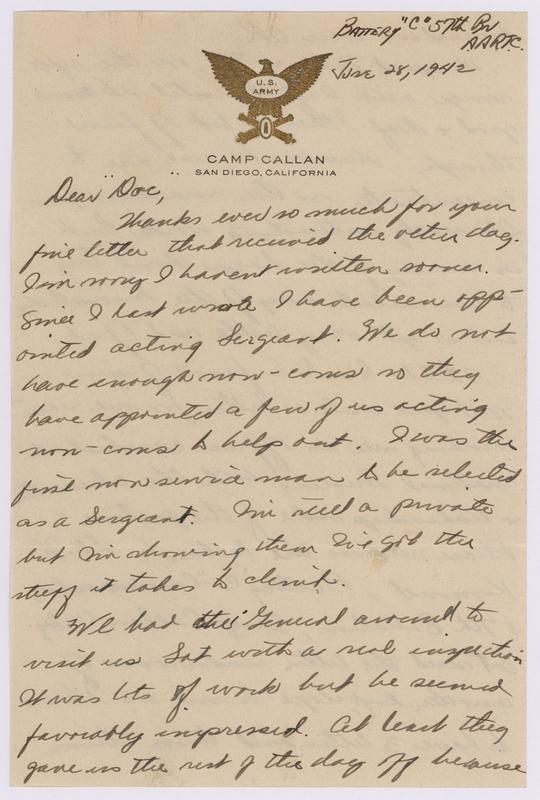 Battery "C" 57th Bn
AARTC.
June 28, 1942
U.S.
ARMY
CAMP CALLAN
SAN DIEGO, CALIFORNIA
Dear "Doc,"
Thanks ever so much for your
fine letter that received the other day.
I'm sorry I havent written sooner.
Since I last wrote I have been app-
ointed acting Sergeant. We do not
have enough non-coms so they
have appointed a few of us acting
non-coms to help out. I was the
first non service man to be selected
as a Sergeant. I'm still a private
but I'm showing them I've got the
stuff it takes to climb.
We had the General around to
visit us Sat with a real inspection
It was lots of work but he seemed
favorably impressed. At least they
gave us the rest of the day off because